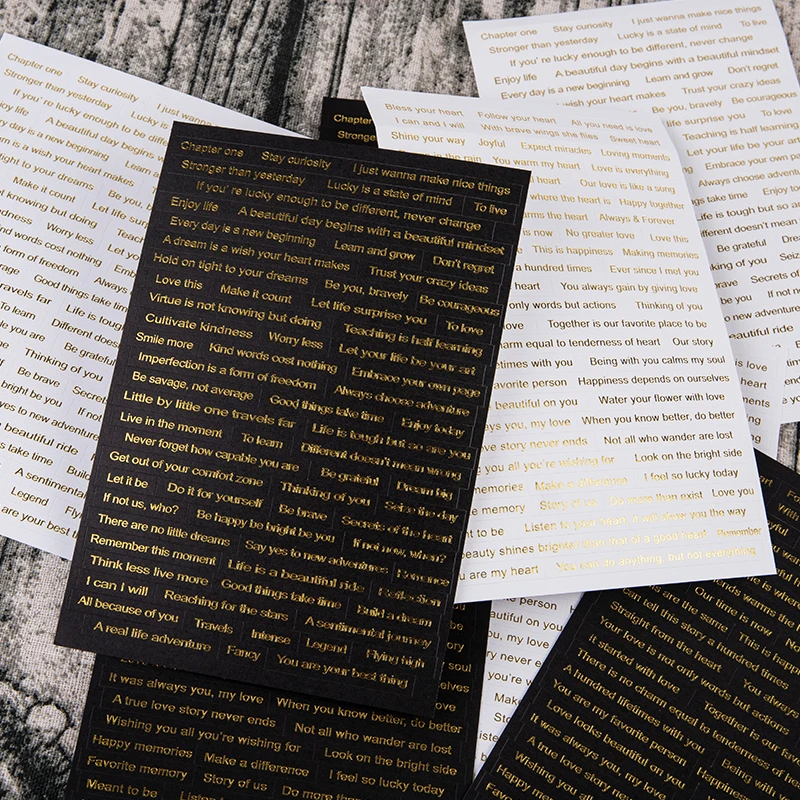 Chapter one Stay curiosity I just wanna make nice things
Stronger than yesterday Lucky is a state of mind To live
If you' re lucky enough to be different, never change
Enjoy life A beautiful day begins with a beautiful mindset
Every day is a new beginning Learn and grow Don't regret
A dream is a wish your heart makes Trust your crazy ideas
Hold on tight to your dreams Be you, bravely Be courageous
Love this Make it count Let life surprise you To love
Virtue is not knowing but doing Teaching is half learning
Cultivate kindness Worry less Let your life be your art
Smile more Kind words cost nothing Embrace your own page
Imperfection is a form of freedom Always choose adventure
Be savage, not average Good things take time Enjoy today
Little by little one travels far Life is tough but so are you
Live in the moment To learn Different doesn't mean wrong
Never forget how capable you are Be grateful Dream big
Get out of your comfort zone Thinking of you Seize the day
Let it be Do it for yourself Be brave Secrets of the heart
If not us, who? Be happy be bright be you If not now, when?
There are no little dreams Say yes to new adventures Romance
Remember this moment Life is a beautiful ride Reflection
Think less live more Good things take time Build a dream
I can I will Reaching for the stars A sentimental journey
All because of you Travels Intense Legend Flying high
A real life adventure Fancy You are your best thing
Bless your heart Follow your heart All you need is love
I can and I will With brave wings she flies Sweet heart
Shine your way Joyful Expect miracles Loving moments
is the rain You warm my heart Love is everything
heart Our love is like a song
where the heart is Happy together
warms the heart Always & Forever
is now No greater love Love this
This is happiness Making memories
a hundred times Ever since I met you
heart You always gain by giving love
only words but actions Thinking of you
love Together is our favorite place to be
charm equal to tenderness of heart Our story
lifetimes with you Being with you calms my soul
favorite person Happiness depends on ourselves
beautiful on you Water your flower with love
you, my love When you know better, do better
love story never ends Not all who wander are lost
you all you're wishing for Look on the bright side
memories Make a difference I feel so lucky today
memory Story of us Do more than exist Love you
to be Listen to your heart, it will show you the way
beauty shines brighter than that of a good heart Remember
you are my heart You can do anything, but not everything
Chapter one Stay curiosity I just wanna make nice things
Stronger than yesterday Lucky is a state of mind To live
If you' re lucky enough to be different, never change
Enjoy life A beautiful day begins with a beautiful mindset
Every day is a new beginning Learn and grow Don't regret
wish your heart makes Trust your crazy ideas
Be you, bravely Be courageous
life surprise you To love
Teaching is half learning
Embrace your own
Always choose
Enjoy
Life is tough but so
Different doesn't mean
Be grateful
Chapter one Stay curiosity I just wanna
Stronger than yesterday Lucky is
If you' re lucky enough to be
Enjoy life A beautiful day begins
day is a new beginning
is a wish your heart makes
tight to your dreams Be you,
Make it count Let life
not knowing but doing
kindness Worry less Let
words cost nothing
form of freedom
average Good things take
travels far Life is
To learn Different
you are Be grateful
Thinking of you
Be brave Secrets
be bright be you If not
yes to new
beautiful ride
take time Build
A sentimental
Legend
You are your best
It was always you, my love When you know better, do better
A true love story never ends Not all who wander are lost
Wishing you all you're wishing for Look on the bright side
Happy memories Make a difference I feel so lucky today
Favorite memory Story of us Do more than
Meant to be Listen
are the same Our time is now
can tell this story a hundred times
Straight from the heart This is happiness
Your love is not only words but actions You always
It started with love Together is our
There is no charm equal to tenderness of heart
A hundred lifetimes with you
You are my favorite person Being with
Love looks beautiful on you Happiness
It was always you, my love Water
A true love story never
Wishing you all
Happy memories